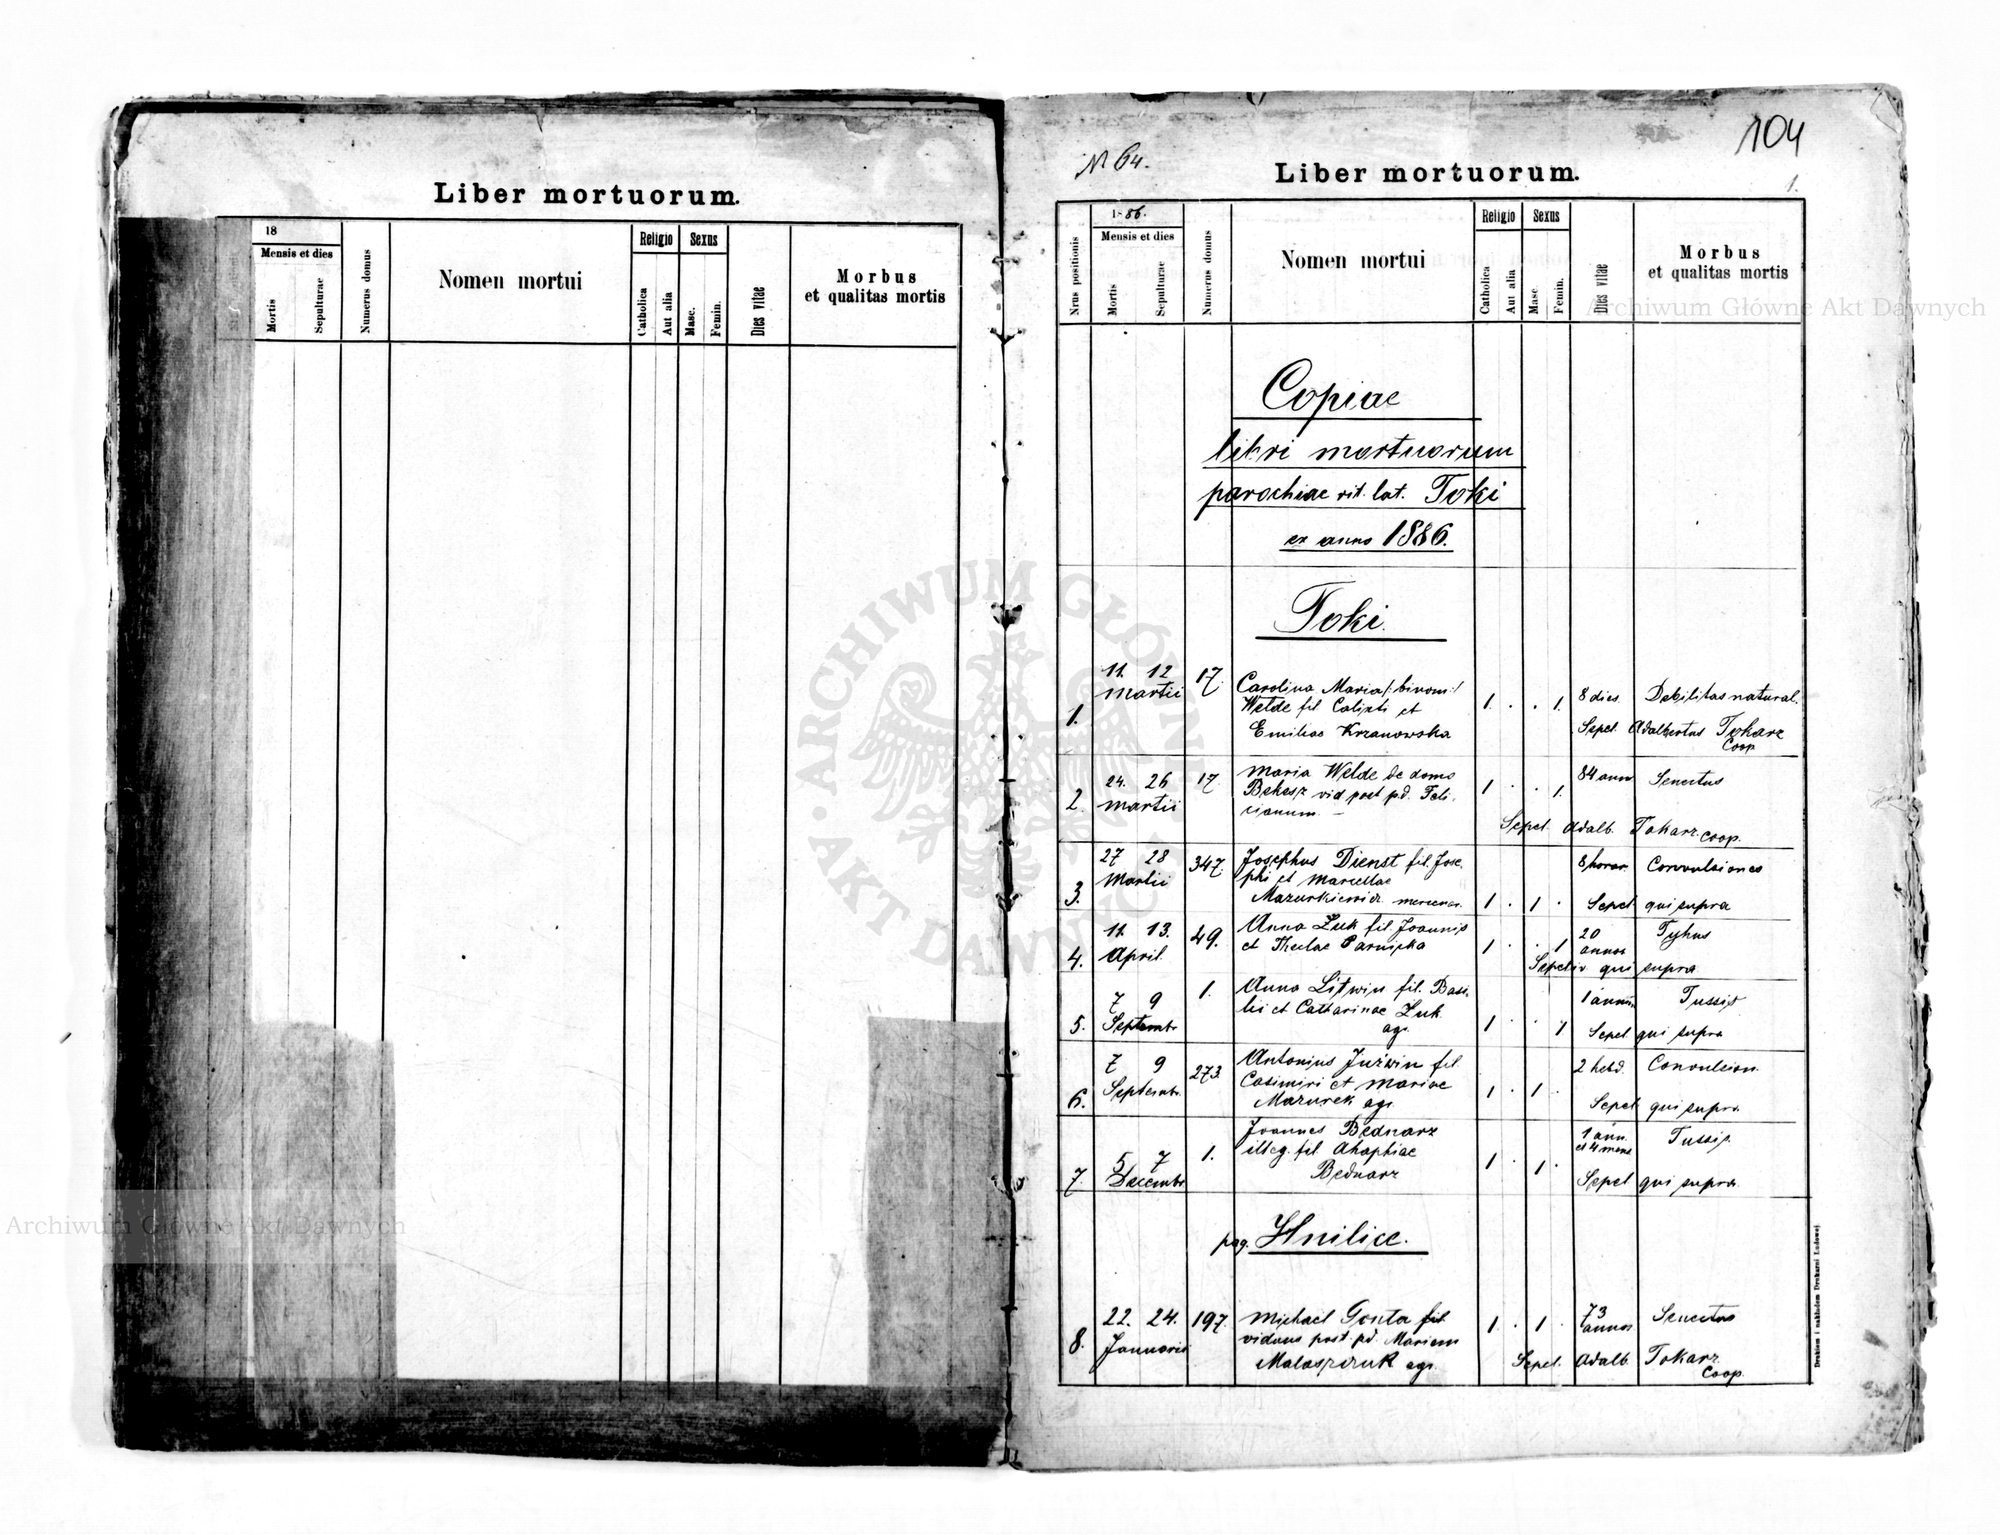 Liber mortuorum.
18
Mensis et dies
Mortis
Sepulturae
Numerus domus
Nomen mortui
Religio
Catholica
Aut alia
Sexus
Masc.
Femin.
Dies vitae
Morbus
et qualitas mortis
104
N 64.
Liber mortuorum.
1.
Nrus positionis
1886.
Mensis et dies
Mortis
Sepulturae
Numerus domus
Nomen mortui
Religio
Catholica
Aut alia
Sexus
Masc
Femin.
Dies vitae
Morbus
et qualitas mortis
Copiae
libri mortuorum
parochiae rit. lat. Toki
ex anno 1886.
Toki.
1. 11. 12 Martii 17. Carolina Maria /: binom :/ 1 . . 1. 8 dies Debilitas natural.
Welde fil Calixti et
Emiliae Krzanowska
Sepel. Adalbertus Tokarz
Coop
2. 24. 26 Martii 17. Maria Welde de domo 1 . . 1. 84 ann Senectus
Bekesz vid post pd. Feli-
cianum. —
Sepel. Adalb. Tokarz. Coop.
3. 27 28 Martii 347. Josephus Dienst fil. Jose- 1 . 1 . 8 horar. Convulsiones
phi et Marcellae
Mazurkiewicz mercenar.
Sepel qui supra
4. 11. 13. April. 49. Anna Żuk fil. Joannis 1 . . 1 20 annor Tyhus
et Theclae
Sepeliv qui supra
5. 7 9 Septembr 1. Anna Litwin fil. Basi- 1 . . 1 1 annum Tussis
lii et Catharinae Żuk
agr.
Sepel qui supra
6. 7 9 Septembr. 273. Antonius Juźwin fil. 1 . 1 . 2 hebd. Convulsion.
Casimiri et Mariae
Mazurek agr.
Sepel qui supra
7. 5 7 Decembr 1. Joannes Bednarz 1 . 1 . 1 ann. et 4 mens Tussis.
illeg. fil Ahaphiae
Bednarz
Sepel qui supra.
pag. Hnilice.
8. 22. 24. Januarii 197. Michael Gonta fil. 1 . 1 . 73 annor Senectus
viduus post. pd. Mariam
Malaszczuk agr.
Sepel. Adalb. Tokarz
Coop.
Drukiem i nakładem Drukarni Ludowej
ARCHIWUM GŁÓWNE AKT DAWNYCH
Archiwum Główne Akt Dawnych
Archiwum Główne Akt Dawnych